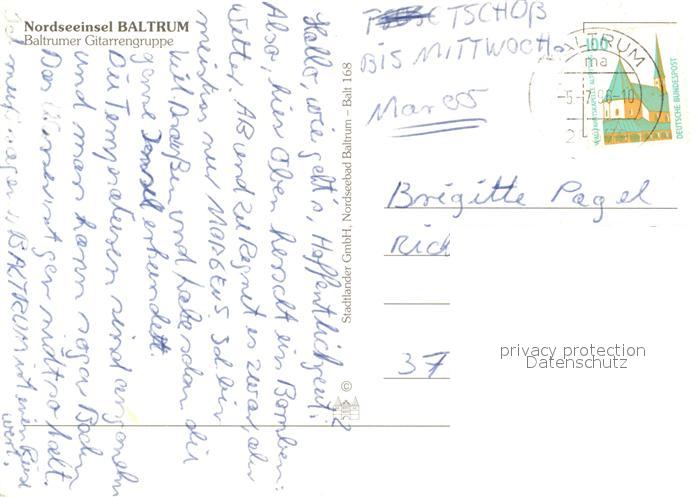 Nordseeinsel BALTRUM
Baltrumer Gitarrengruppe
Hallo, wie geht's, Hoffentlich gut!
Also, hier oben herscht ein Bomben:
Wetter. AB und zu Regnet es zwar, aber
meistens nur MORGENS. Ich bin
viel Draußen und habe schon die
ganze Insel erkundet.
Die Temperaturen sind angenehm
und man kann sogar Baden
Das Wasser ist gar nicht so kalt.
sagen, BALTRUM ist eine Reise
wert.
Stadtlander GmbH, Nordseebad Baltrum – Balt 168
©
TSCHÖß
BIS MITTWOCH
Marcos
BALTRUM
100
DEUTSCHE BUNDESPOST
Brigitte Pagel
Rich
37
privacy protection
Datenschutz